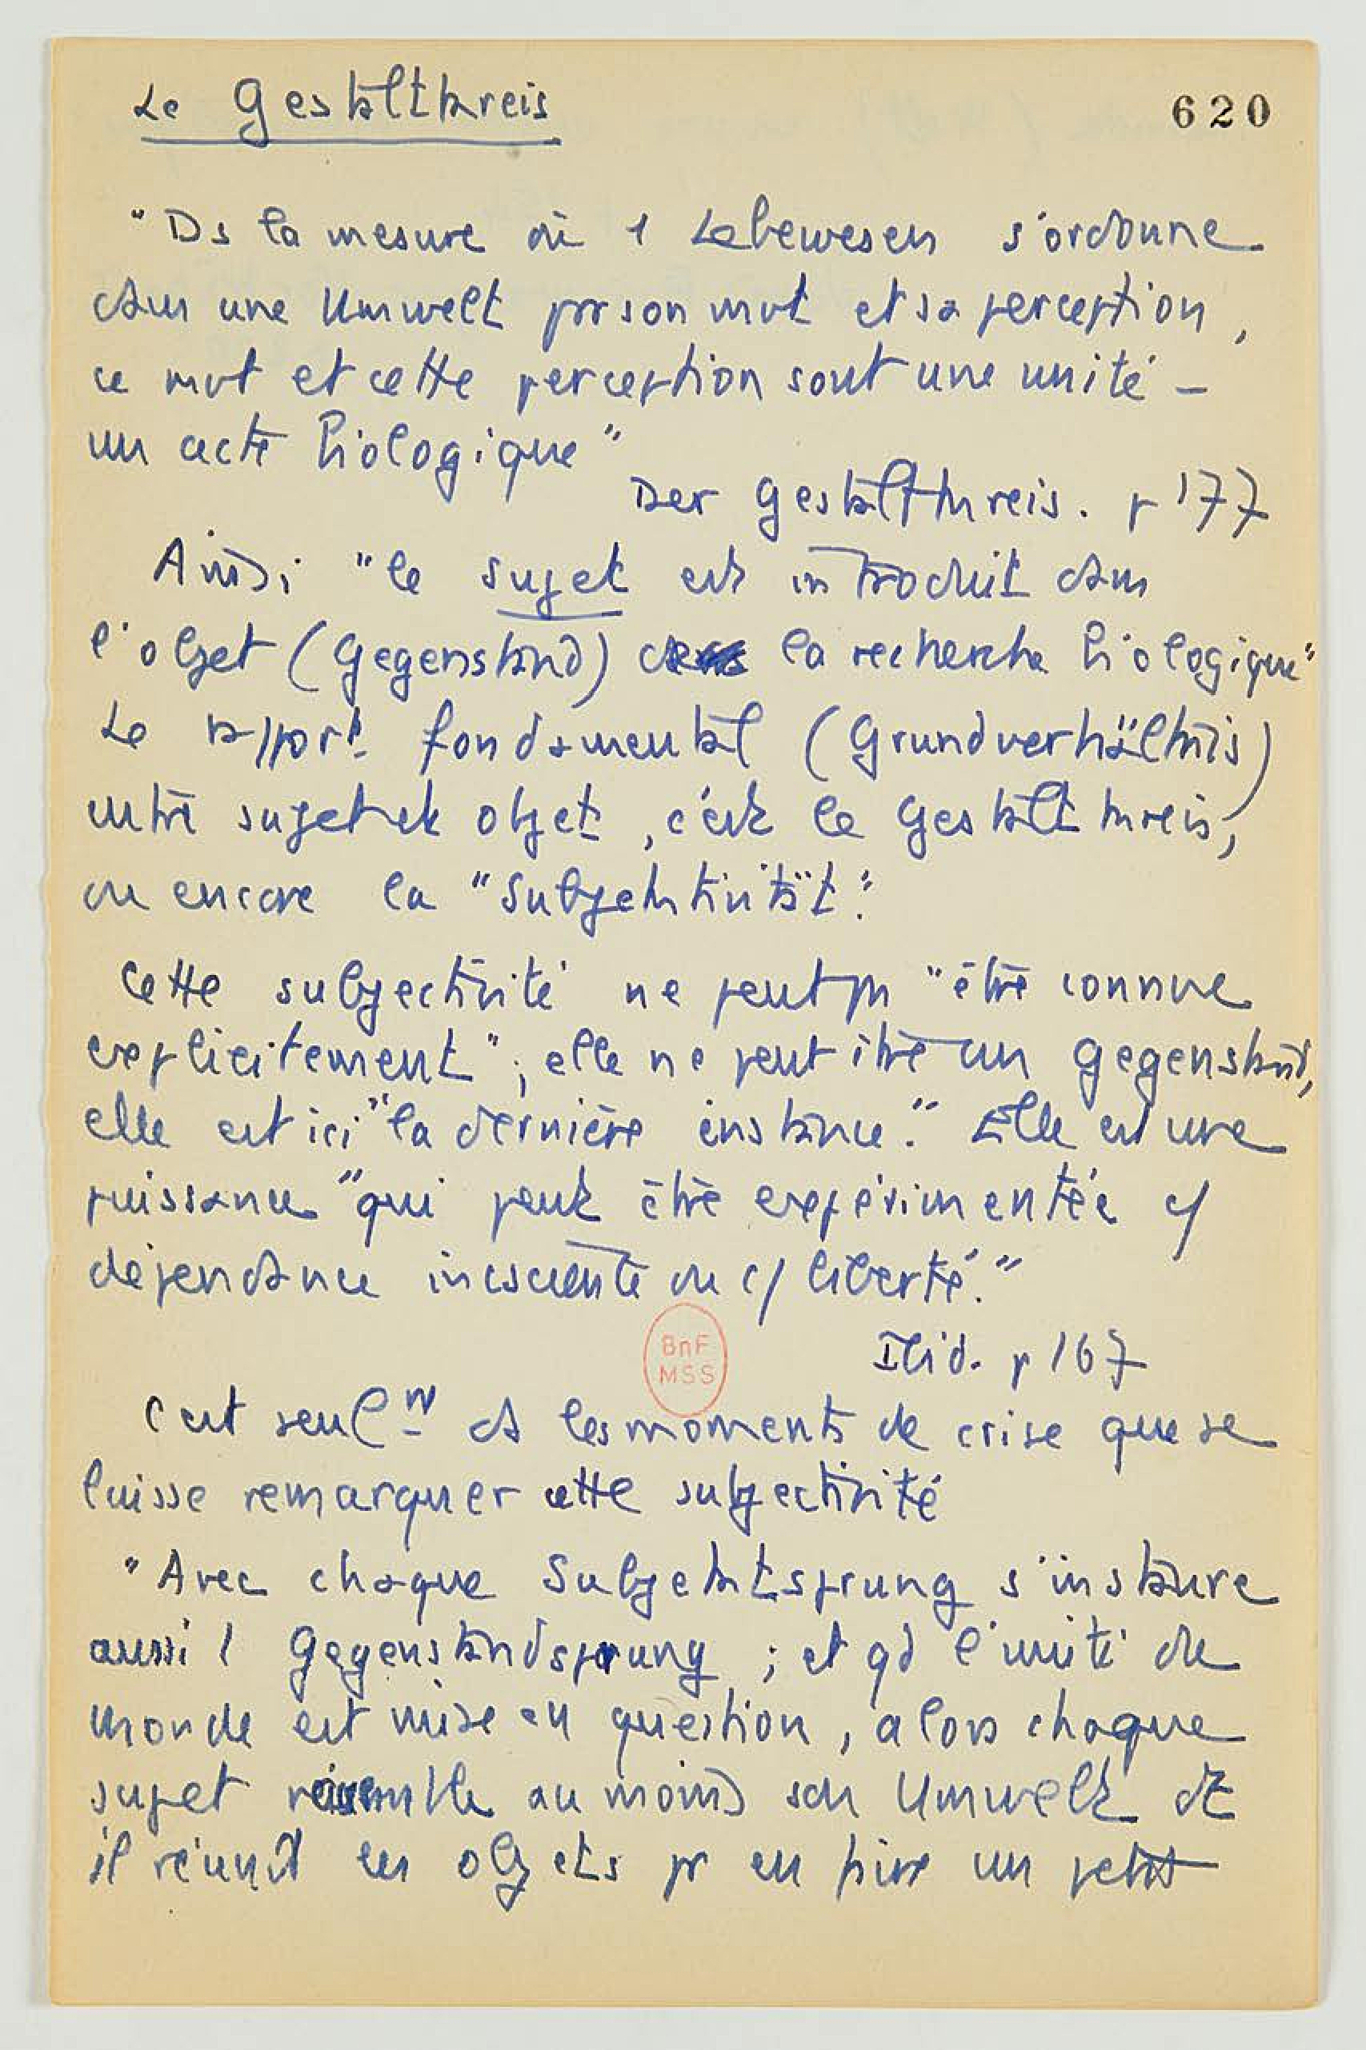 Le Gestaltkreis
620
"Ds la mesure où 1 Lebewesen s'ordonne
dans une Umwelt par son mvt et sa perception,
ce mvt et cette perception sont une unité –
un acte biologique"
Der Gestaltkreis. p 177
Ainsi "le sujet est introduit dans
l'objet (Gegenstand) de la recherche biologique"
Le rapport fondamental (Grundverhältnis)
entre sujet et objet, c'est le Gestaltkreis,
ou encore la "Subjektivität".
Cette subjectivité ne peut pas "être connue
explicitement"; elle ne peut être un Gegenstand,
elle est ici "la dernière instance." Elle est une
puissance "qui peut être expérimentée c/
dépendance incsciente ou c/ liberté."
BnF
MSS
Ibid. p 167
C'est seulmt ds les moments de crise que se
laisse remarquer cette subjectivité
"Avec chaque Subjektsprung s'instaure
aussi 1 Gegenstandsprung ; et qd l'unité du
monde est mise en question, alors chaque
sujet rassemble au moins son Umwelt dt
il réunit les objets pr en faire un petit